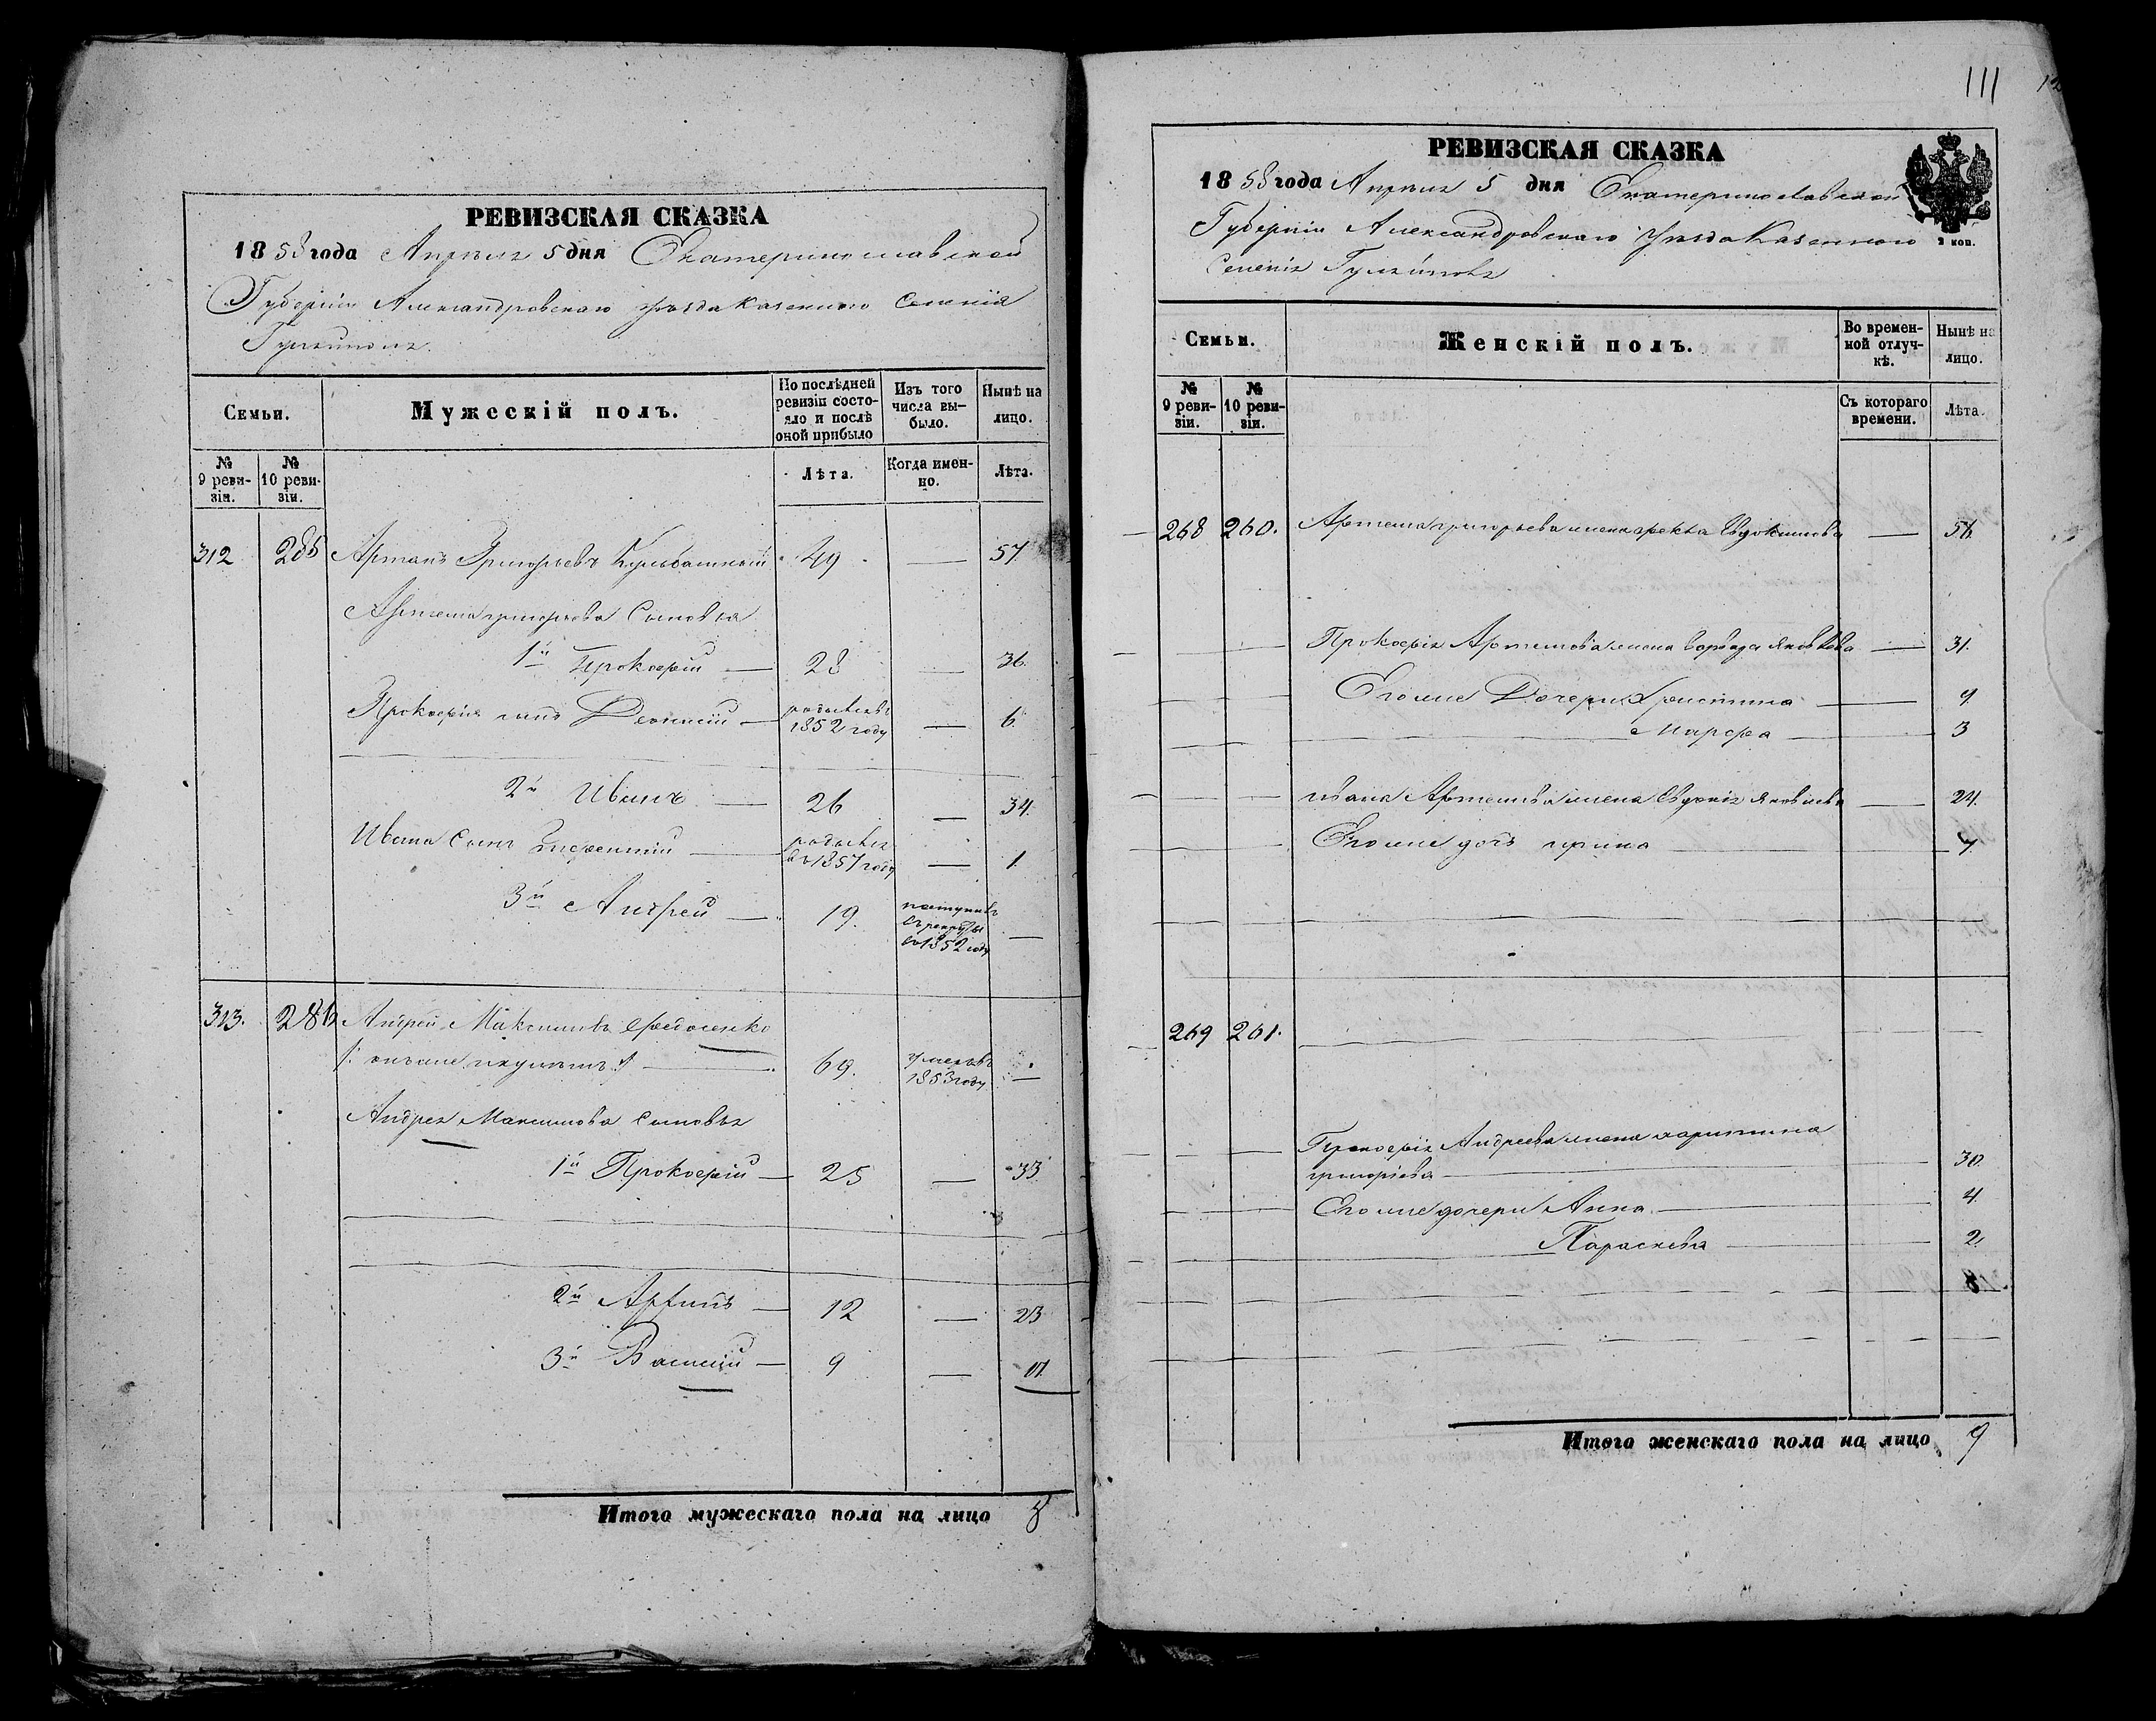 РЕВИЗСКАЯ СКАЗКА
1858 года Апреля 5 дня Екатеринославской
Губернии Александровскаго уезда Казеннаго Селения
Гуляйполя.
Семьи.
Мужескій полъ.
По послѣдней ревизіи состояло и послѣ оной прибыло
Изъ того числа выбыло.
Нынѣ на лицо.
№ 9 ревизіи.
№ 10 ревизіи.
Лѣта.
Когда именно.
Лѣта.
312 285 Артемъ Григорьевъ 49 — 57.
Артема григорьева Сыновья
1й Прокофий — 28 — 36.
Прокофия сынъ Деонисий — родился въ 1852 году — 6.
2й Иванъ — 26 — 34.
Ивана Сынъ — родился въ 1857 году — 1.
3й Андрей — 19. поступилъ в рекруты в 1852 году —
313. 286 Андрей Максимовъ Федосенко
69. умеръ въ 1853 году —
Андрея Максимова Сыновья
1й Прокофий — 25 — 33.
2й Архипъ — 12 — 23
3й Василий — 9 — 17.
Итого мужескаго пола на лицо 8
111
РЕВИЗСКАЯ СКАЗКА
1858 года Апреля 5 дня Екатеринославской
Губернии Александровскаго уезда Казеннаго
2 коп.
Селения Гуляйполя
Семьи.
Женскій полъ.
Во временной отлучкѣ.
Нынѣ на лицо.
№ 9 ревизіи.
№ 10 ревизіи.
Съ котораго времени.
Лѣта.
268 260. Артема григорьева жена Фекла Евдокимова — 56.
Прокофия Артемова жена Варвара Яковлева — 31.
Его же Дочери Христина — 9.
Марфа — 3
Ивана Артемова жена Евдокия Яковлева — 24.
Его же дочь ирина — 4.
269 261.
Прокофия Андреева жена харитина
григориева — 30.
Его же дочери Анна — 4.
Параскева — 2.
Итого женскаго пола на лицо 9